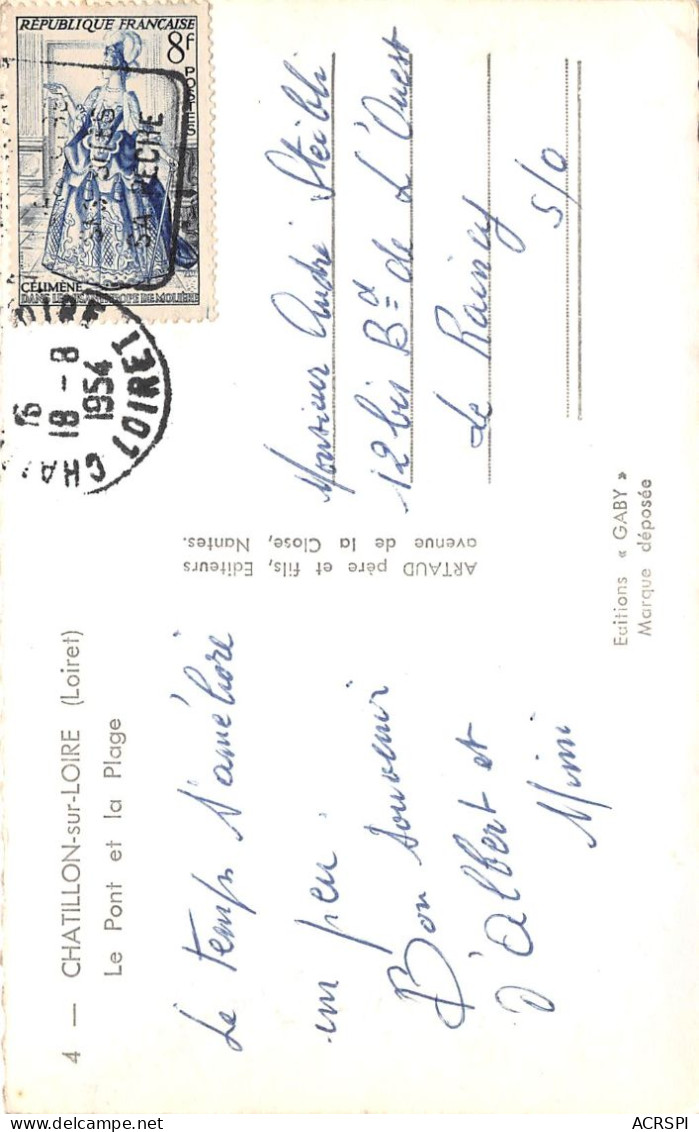 4 — CHATILLON-sur-LOIRE (Loiret)
Le Pont et la Plage
Le temps s'améliore
un peu.
Bon souvenir
d'Albert et
Mimi
ARTAUD père et fils, Editeurs
avenue de la Close, Nantes.
RÉPUBLIQUE FRANÇAISE
8f
POSTES
CÉLIMÈNE
DANS LE MISANTHROPE DE MOLIÈRE
SES SITES
SA PÊCHE
16
18 - 8
1954
LOIRET
Monsieur André Steibli
12 bis Bd de L'Ouest
Le Raincy
S/O
Editions « GABY »
Marque déposée
ACRSPI